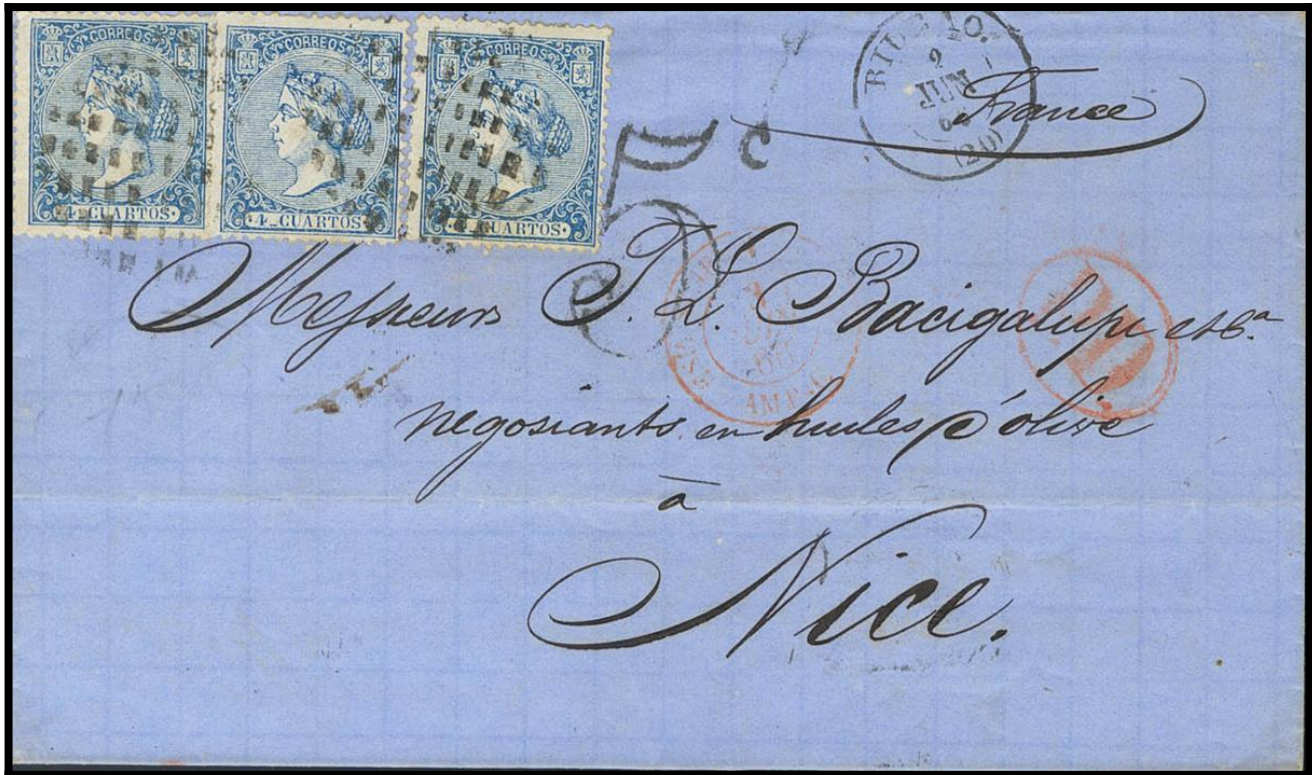 CORREOS CORREOS CORREOS
4 CUARTOS 4 CUARTOS 4 CUARTOS
2
JUN
(20)
France
PD
66
Messieurs J. L. Bacigalupi et Cª
negosiants en huiles d'olive
à
Nice.